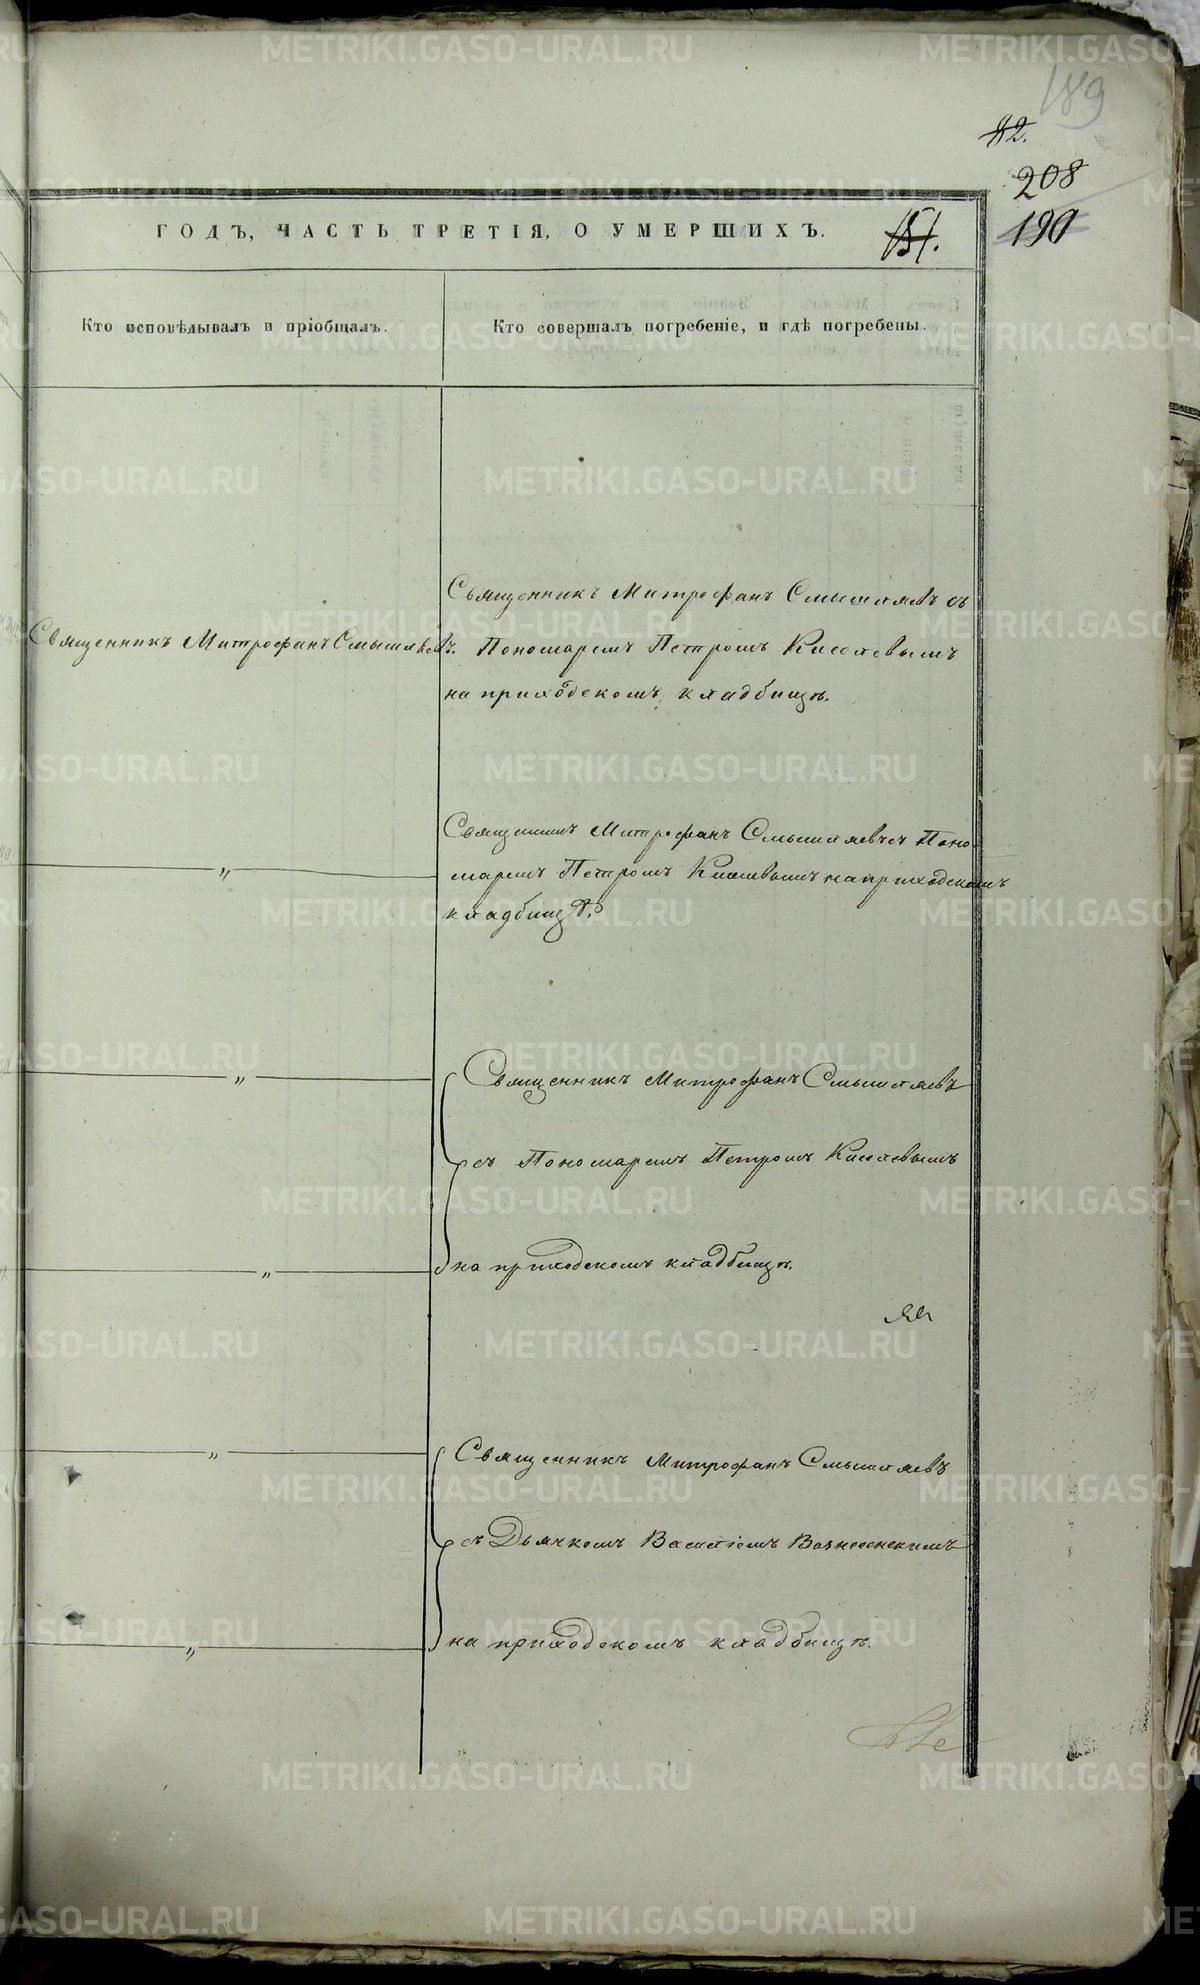 189
82.
208
190
ГОДЪ, ЧАСТЬ ТРЕТІЯ, О УМЕРШИХЪ.
151.
Кто исповѣдывалъ и пріобщалъ.
Кто совершалъ погребеніе, и гдѣ погребены.
Священникъ Митрофанъ Смышляевъ съ
Священникъ Митрофанъ Смышляевъ.
Пономаремъ Петромъ Киселевымъ
на приходскомъ кладбищѣ.
Священникъ Митрофанъ Смышляевъ съ Поно
„
маремъ Петромъ Киселевымъ на приходскомъ
кладбищѣ.
„
Священникъ Митрофанъ Смышляевъ
съ Пономаремъ Петромъ Киселевымъ
„
на приходскомъ кладбищѣ.
„
Священникъ Митрофанъ Смышляевъ
съ Дьячкомъ Василіемъ Вознесенскимъ
„
на приходскомъ кладбищѣ.
METRIKI.GASO-URAL.RU